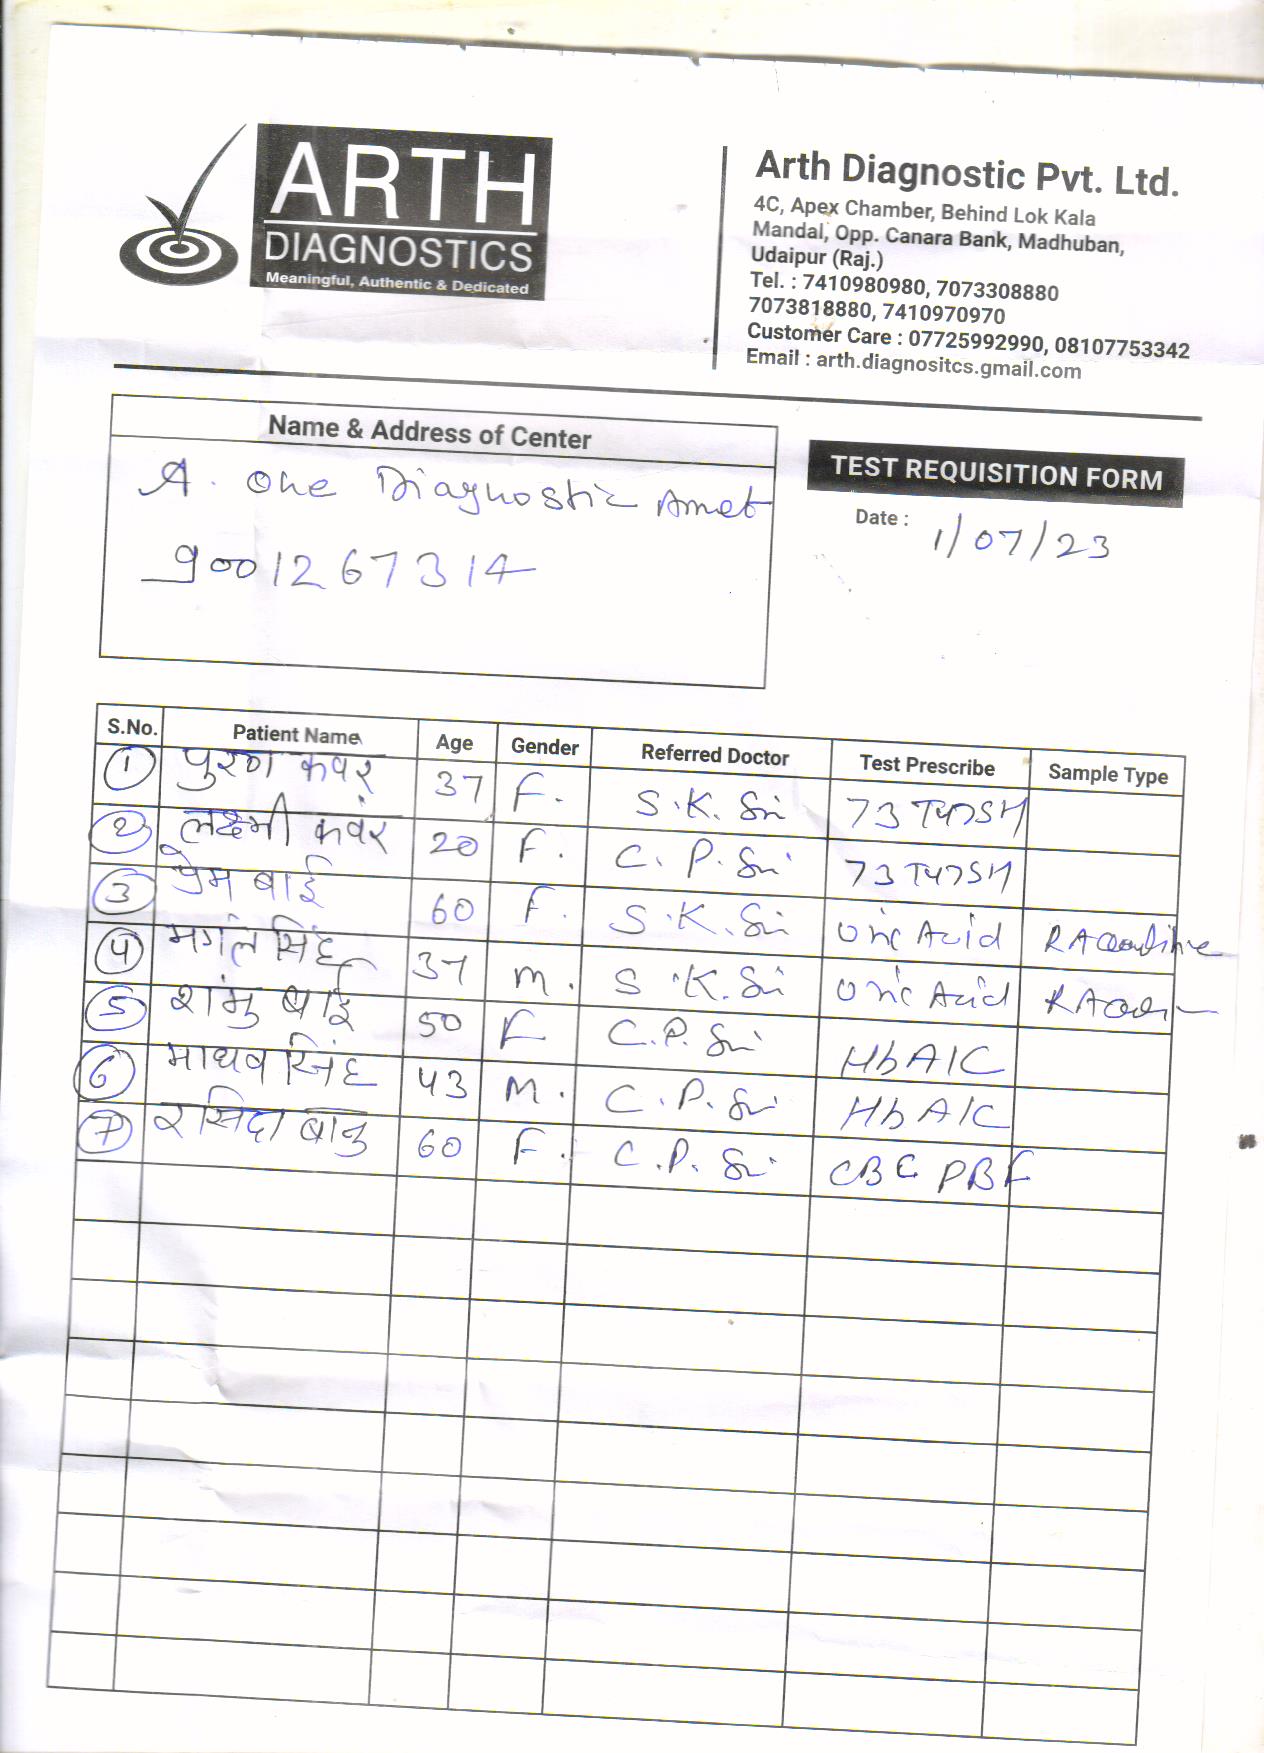 ARTH
DIAGNOSTICS
Meaningful, Authentic & Dedicated
Arth Diagnostic Pvt. Ltd.
4C, Apex Chamber, Behind Lok Kala
Mandal, Opp. Canara Bank, Madhuban,
Udaipur (Raj.)
Tel. : 7410980980, 7073308880
7073818880, 7410970970
Customer Care : 07725992990, 08107753342
Email : arth.diagnositcs.gmail.com
Name & Address of Center
A. One Diagnostic Amet
9001267314
TEST REQUISITION FORM
Date : 1/07/23
S.No. Patient Name Age Gender Referred Doctor Test Prescribe Sample Type
1 पुरण कवर 37 F. S.K. Sir T3T4TSH
2 लक्ष्मी कवर 20 F. C. P. Sir T3T4TSH
3 प्रेम बाई 60 F. S.K. Sir Uric Acid
4 मगंल सिंह 37 M. S.K. Sir Uric Acid
5 शंभु बाई 50 F C.P. Sir HbA1C
6 माधव सिंह 43 M. C.P. Sir HbA1C
7 रसिदा बानु 60 F. C.P. Sir CBC PBF